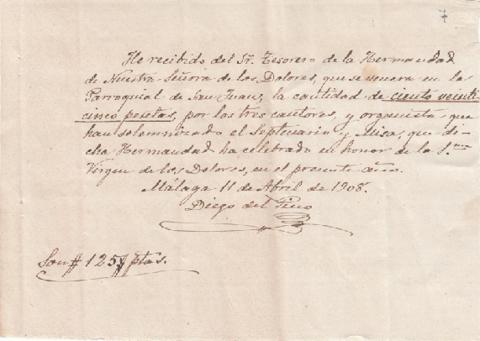 7
He recibido del Sr. Tesorero de la Hermandad
de Nuestra Señora de los Dolores, que se venera en la
Parroquial de San Juan, la cantidad de ciento veinti
cinco pesetas, por los tres cantores, y orquesta que
han solemnizado el Septenario y Misa, que di-
cha Hermandad ha celebrado en honor de la S.ma
Virgen de los Dolores, en el presente año.
Málaga 11 de Abril de 1908.
Diego del Pino
Son # 125 # ptas.